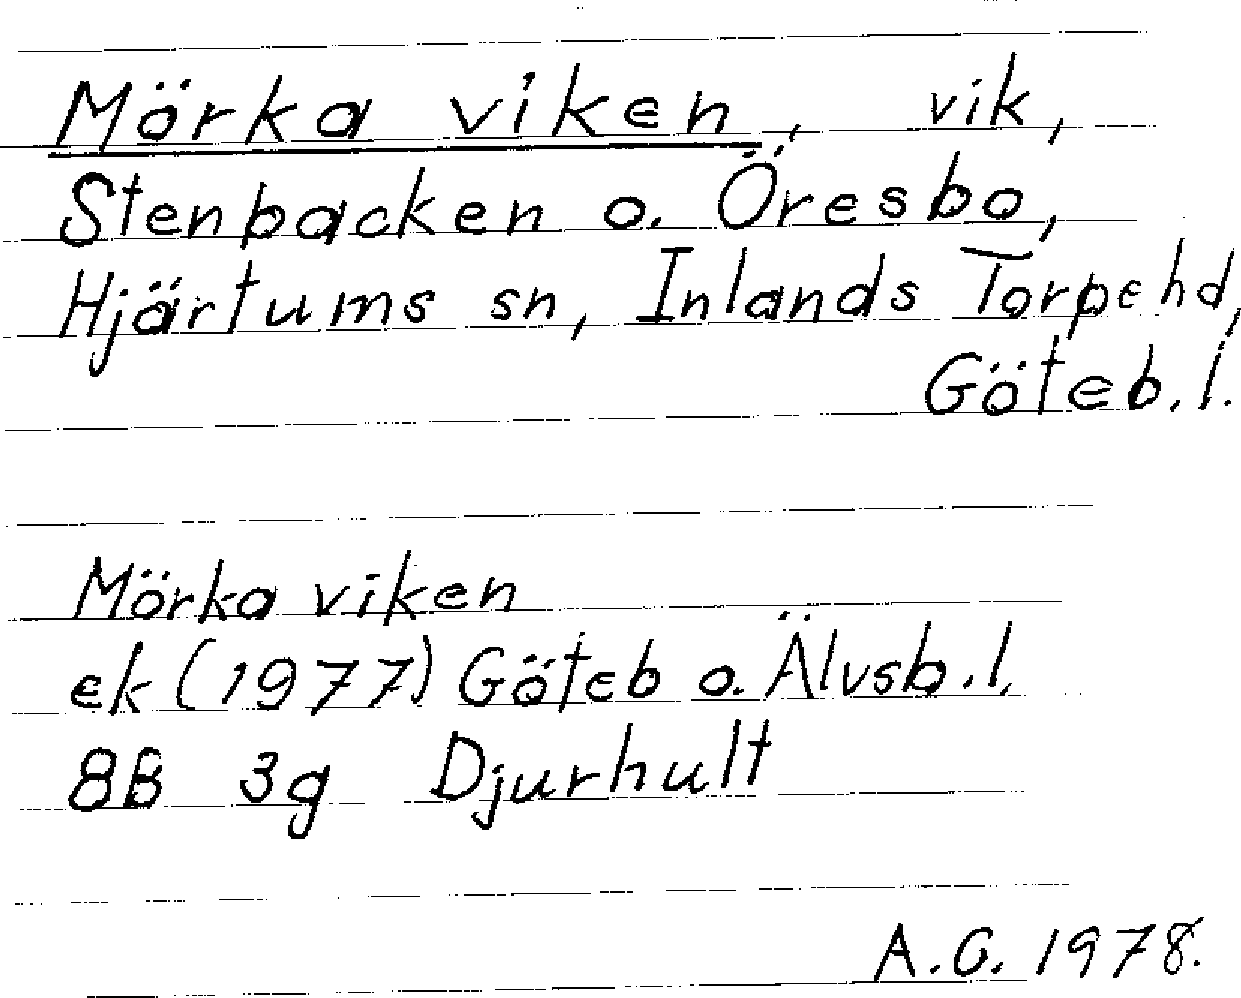 Mörka viken, vik,
Stenbacken o. Öresbo,
Hjärtums sn, Inlands Torpe hd,
Göteb. l.
Mörka viken
ek (1977) Göteb o. Älvsb. l.
8B 3g Djurhult
A.G. 1978.